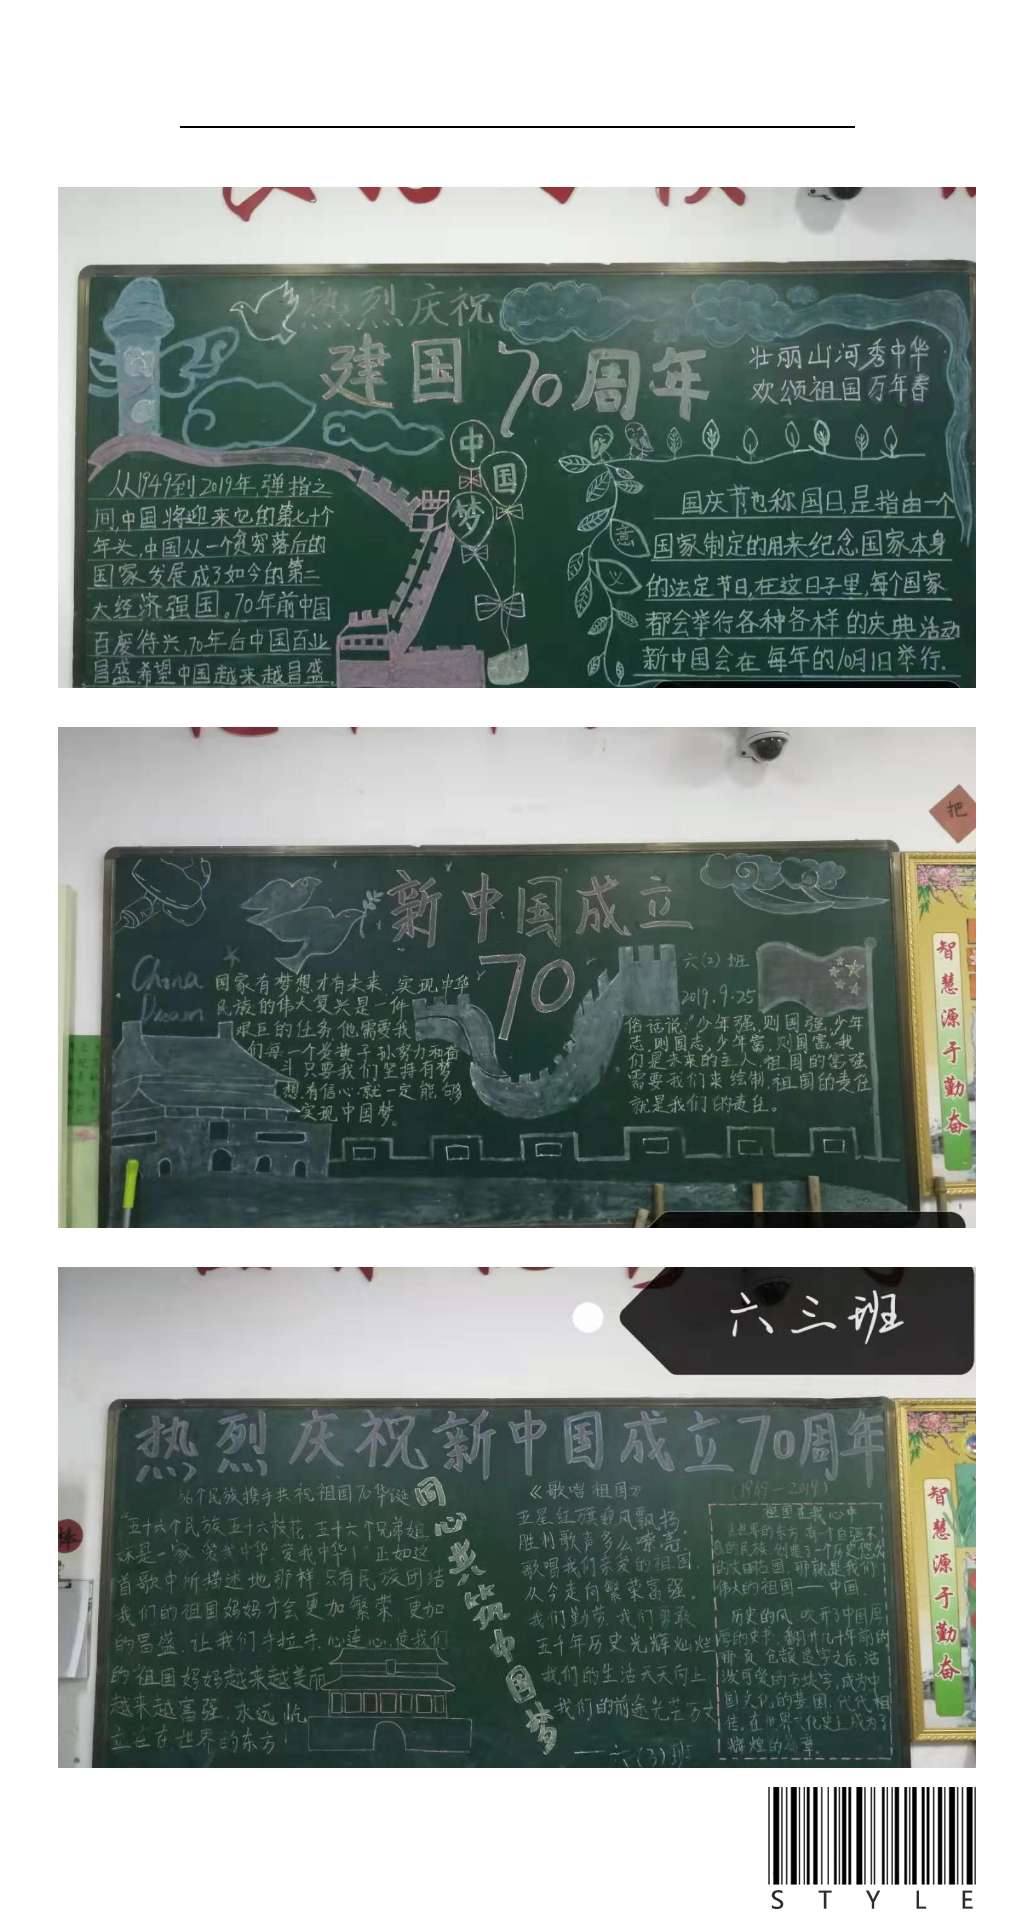 热烈庆祝
建国70周年
壮丽山河秀中华
欢颂祖国万年春
中
国
梦
从1949到2019年,弹指之
间,中国将迎来它的第七十个
年头,中国从一个贫穷落后的
国家发展成了如今的第二
大经济强国。70年前中国
百废待兴,70年后中国百业
昌盛,希望中国越来越昌盛.
意
义
国庆节也称国日,是指由一个
国家制定的用来纪念国家本身
的法定节日,在这日子里,每个国家
都会举行各种各样的庆典活动
新中国会在每年的10月1日举行.
把
新中国成立
70
China
Dream
国家有梦想才有未来,实现中华
民族的伟大复兴是一件
艰巨的任务他需要我
们每一个炎黄子孙努力和奋
斗只要我们坚持有梦
想,有信心就一定能够
实现中国梦。
六(2)班
2019.9.25
俗话说:“少年强,则国强,少年
志,则国志,少年富,则国富.我
们是未来的主人,祖国的富强
需要我们来绘制,祖国的责任
就是我们的责任。
智慧源于勤奋
六三班
热烈庆祝新中国成立70周年
(1949-2019)
56个民族携手共祝祖国70华诞
“五十六个民族五十六枝花,五十六个兄弟姐
妹是一家,爱我中华,爱我中华!”正如这
首歌中所描述地那样只有民族团结
我们的祖国妈妈才会更加繁荣,更加
的昌盛,让我们手拉手,心连心,使我们
的祖国妈妈越来越美丽
越来越富强,永远屹
立在在世界的东方!
同心共筑中国梦
《歌唱祖国》
五星红旗迎风飘扬,
胜利歌声多么嘹亮,
歌唱我们亲爱的祖国,
从今走向繁荣富强.
我们勤劳,我们勇敢
五千年历史光辉灿烂
我们的生活天天向上
我们的前途光芒万丈
——六(3)班
祖国在我心中
在世界的东方,有一个自强不
息的民族,创造了一个历史悠久
的文明古国,那就是我们
伟大的祖国——中国.
历史的风,吹开了中国厚
厚的史书,翻开几十年前的
新页,仓颉造字之后,活
泼可爱的方块字,成为中
国文化的基因,代代相
传,在世界文化史上成为了
辉煌的篇章.
智慧源于勤奋
STYLE